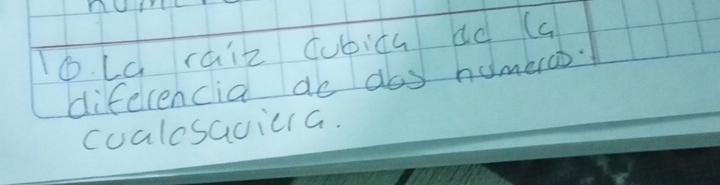 10. La raíz cubica de la
diferencia de dos numeros.
cualesquiera.